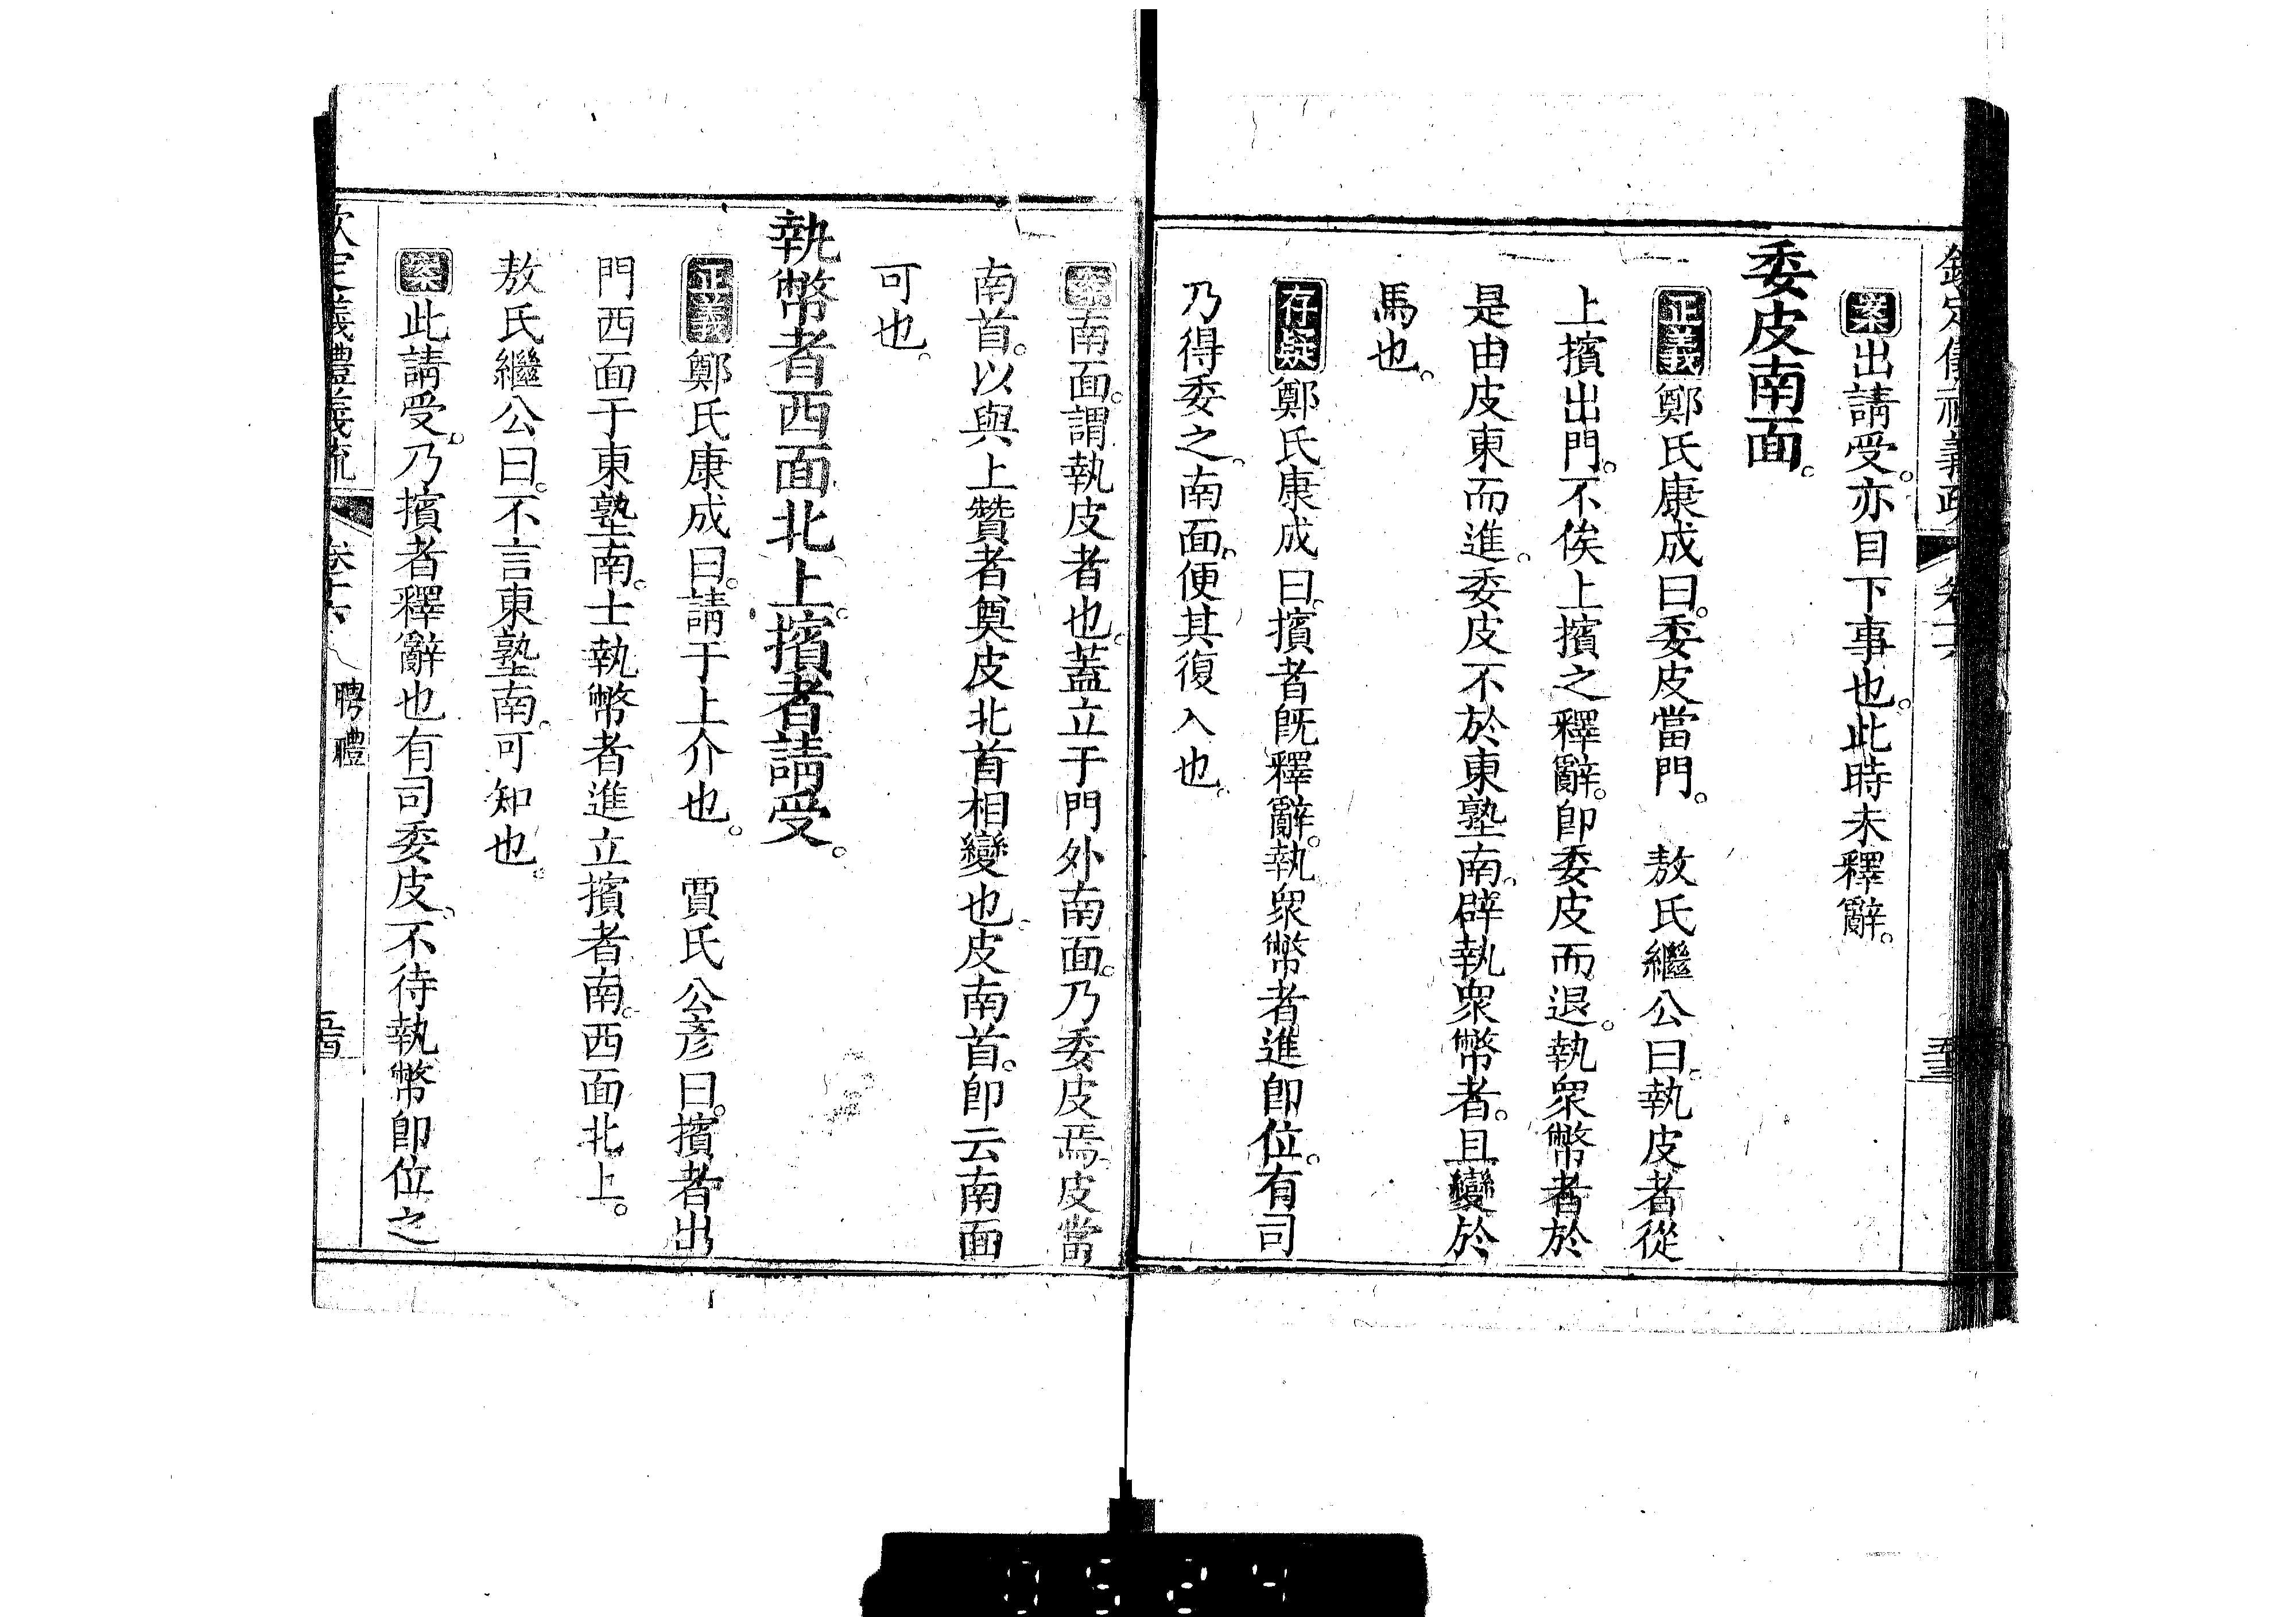 案出請受。亦目下事也。此時未釋辭。
委皮南面。
正義鄭氏康成曰。委皮當門。 敖氏繼公曰。執皮者從
上擯出門。不俟上擯之釋辭。卽委皮而退。執衆幣者於
是由皮東而進。委皮不於東塾南。辟執衆幣者。且變於
馬也。
存疑鄭氏康成曰。擯者旣釋辭。執衆幣者進卽位。有司
乃得委之。南面。便其復入也。
案南面。謂執皮者也。蓋立于門外南面。乃委皮焉。皮當
南首。以與上贊者奠皮北首相變也。皮南首。卽云南面
可也。
執幣者西面北上。擯者請受。
正義鄭氏康成曰。請于上介也。 賈氏公彥曰。擯者出
門西面于東塾南。士執幣者進立擯者南。西面北上。
敖氏繼公曰。不言東塾南。可知也。
案此請受。乃擯者釋辭也有司委皮。不待執幣卽位之
聘禮